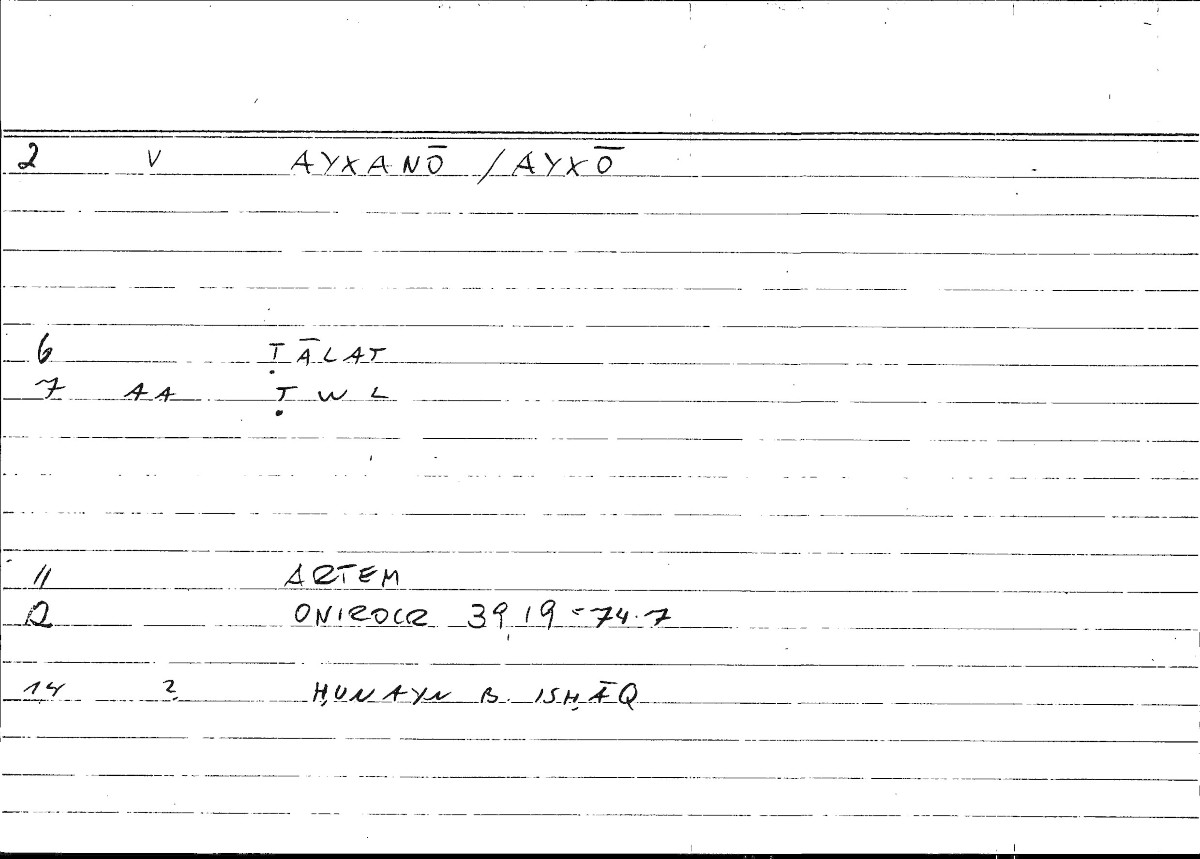 2 V AYXANŌ / AYXŌ
6 ṬĀLAT
7 AA Ṭ W L
11 ARTEM
12 ONIROCR 39,19 = 74.7
14 ? ḤUNAYN B. ISḤĀQ